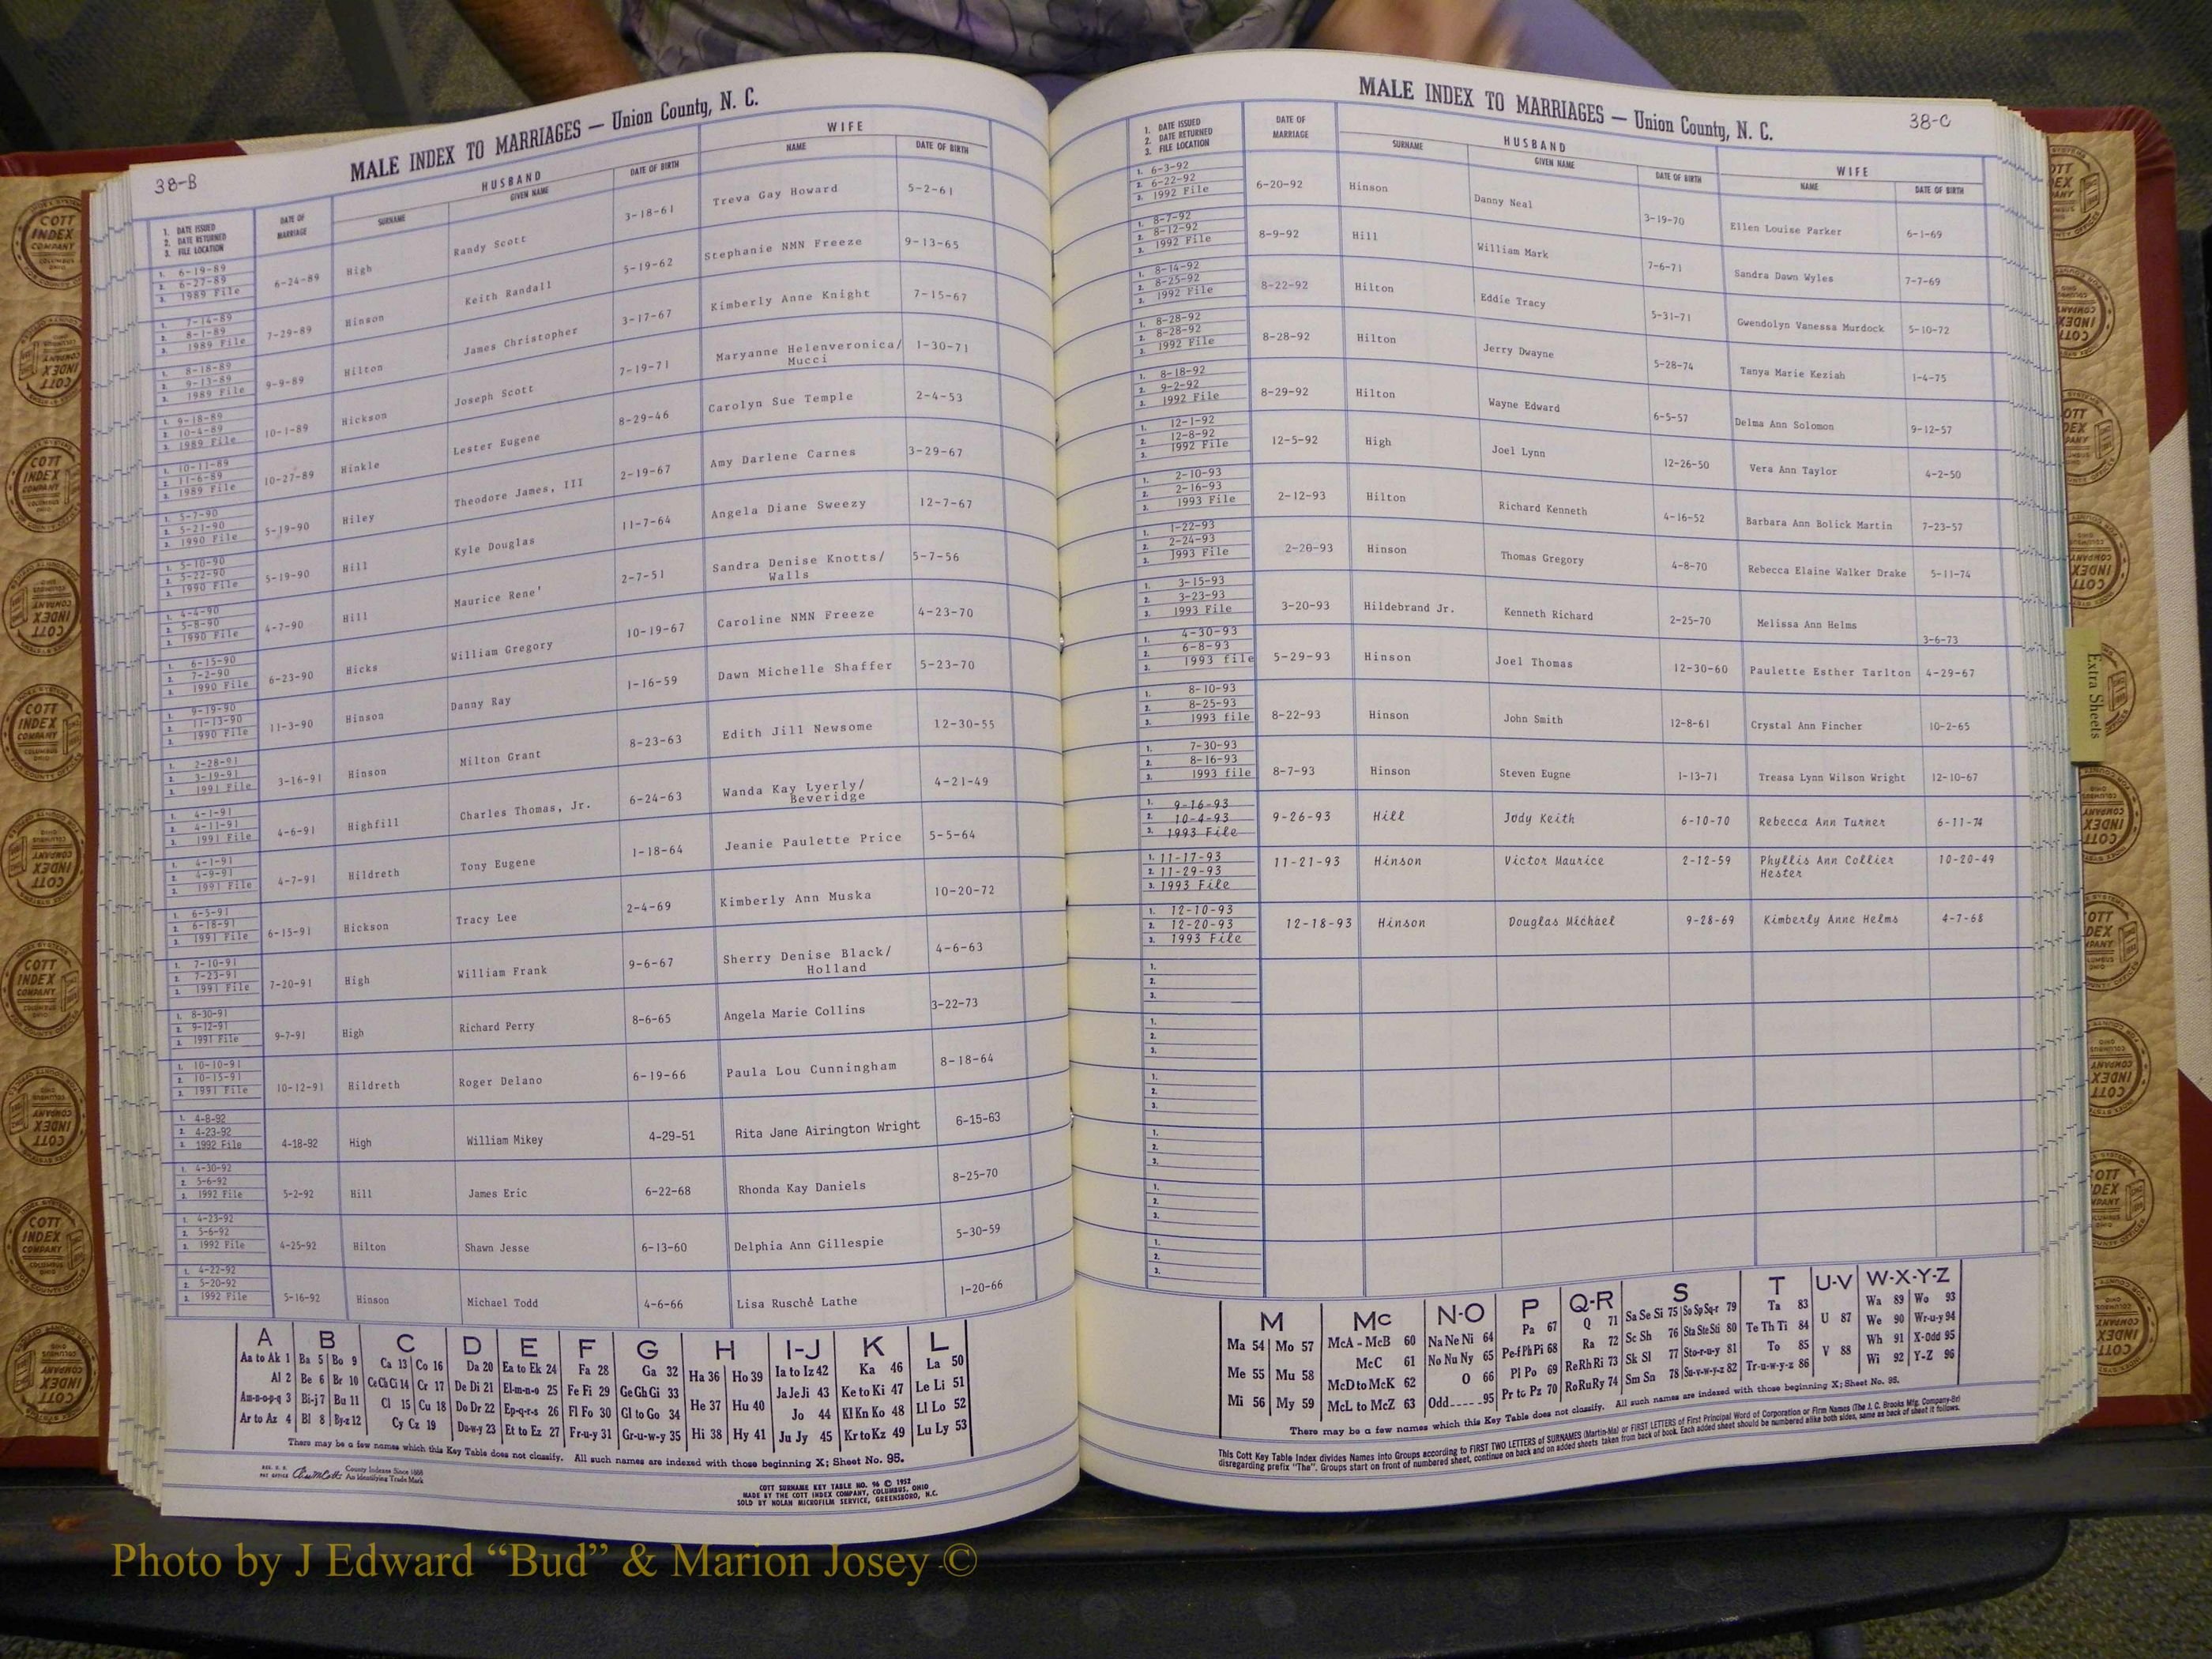 38-B
MALE INDEX TO MARRIAGES — Union County, N. C.
1. DATE ISSUED
2. DATE RETURNED
3. FILE LOCATION
DATE OF MARRIAGE
HUSBAND
SURNAME GIVEN NAME DATE OF BIRTH
WIFE
NAME DATE OF BIRTH
1. 6-19-89
2. 6-27-89
3. 1989 File
6-24-89 High Randy Scott 3-18-61 Treva Gay Howard 5-2-61
1. 7-14-89
2. 8-1-89
3. 1989 File
7-29-89 Hinson Keith Randall 5-19-62 Stephanie NMN Freeze 9-13-65
1. 8-18-89
2. 9-13-89
3. 1989 File
9-9-89 Hilton James Christopher 3-17-67 Kimberly Anne Knight 7-15-67
1. 9-18-89
2. 10-4-89
3. 1989 File
10-1-89 Hickson Joseph Scott 7-19-71 Maryanne Helenveronica/ 1-30-71
Mucci
1. 10-11-89
2. 11-6-89
3. 1989 File
10-27-89 Hinkle Lester Eugene 8-29-46 Carolyn Sue Temple 2-4-53
1. 5-7-90
2. 5-21-90
3. 1990 File
5-19-90 Hiley Theodore James, III 2-19-67 Amy Darlene Carnes 3-29-67
1. 5-10-90
2. 5-22-90
3. 1990 File
5-19-90 Hill Kyle Douglas 11-7-64 Angela Diane Sweezy 12-7-67
1. 4-4-90
2. 5-8-90
3. 1990 File
4-7-90 Hill Maurice Rene' 2-7-51 Sandra Denise Knotts/ 5-7-56
Walls
1. 6-15-90
2. 7-2-90
3. 1990 File
6-23-90 Hicks William Gregory 10-19-67 Caroline NMN Freeze 4-23-70
1. 9-19-90
2. 11-13-90
3. 1990 File
11-3-90 Hinson Danny Ray 1-16-59 Dawn Michelle Shaffer 5-23-70
1. 2-28-91
2. 3-19-91
3. 1991 File
3-16-91 Hinson Milton Grant 8-23-63 Edith Jill Newsome 12-30-55
1. 4-1-91
2. 4-11-91
3. 1991 File
4-6-91 Highfill Charles Thomas, Jr. 6-24-63 Wanda Kay Lyerly/ 4-21-49
Beveridge
1. 4-1-91
2. 4-9-91
3. 1991 File
4-7-91 Hildreth Tony Eugene 1-18-64 Jeanie Paulette Price 5-5-64
1. 6-5-91
2. 6-18-91
3. 1991 File
6-15-91 Hickson Tracy Lee 2-4-69 Kimberly Ann Muska 10-20-72
1. 7-10-91
2. 7-23-91
3. 1991 File
7-20-91 High William Frank 9-6-67 Sherry Denise Black/ 4-6-63
Holland
1. 8-30-91
2. 9-12-91
3. 1991 File
9-7-91 High Richard Perry 8-6-65 Angela Marie Collins 3-22-73
1. 10-10-91
2. 10-15-91
3. 1991 File
10-12-91 Hildreth Roger Delano 6-19-66 Paula Lou Cunningham 8-18-64
1. 4-8-92
2. 4-23-92
3. 1992 File
4-18-92 High William Mikey 4-29-51 Rita Jane Airington Wright 6-15-63
1. 4-30-92
2. 5-6-92
3. 1992 File
5-2-92 Hill James Eric 6-22-68 Rhonda Kay Daniels 8-25-70
1. 4-23-92
2. 5-6-92
3. 1992 File
4-25-92 Hilton Shawn Jesse 6-13-60 Delphia Ann Gillespie 5-30-59
1. 4-22-92
2. 5-20-92
3. 1992 File
5-16-92 Hinson Michael Todd 4-6-66 Lisa Rusché Lathe 1-20-66
A B C D E F G H I-J K L
Aa to Ak 1 Ba 5 Bo 9 Ca 13 Co 16 Da 20 Ea to Ek 24 Fa 28 Ga 32 Ha 36 Ho 39 Ia to Iz 42 Ka 46 La 50
Al 2 Be 6 Br 10 Ce Ch Ci 14 Cr 17 De Di 21 El-m-n-o 25 Fe Fi 29 Ge Gh Gi 33 He 37 Hu 40 Ja Je Ji 43 Ke to Ki 47 Le Li 51
Am-n-o-p-q 3 Bi-j 7 Bu 11 Cl 15 Cu 18 Do Dr 22 Ep-q-r-s 26 Fl Fo 30 Gl to Go 34 Hi 38 Hy 41 Jo 44 Kl Kn Ko 48 Ll Lo 52
Ar to Az 4 Bl 8 By-z 12 Cy Cz 19 Du-w-y 23 Et to Ez 27 Fr-u-y 31 Gr-u-w-y 35 Ju Jy 45 Kr to Kz 49 Lu Ly 53
There may be a few names which this Key Table does not classify. All such names are indexed with those beginning X; Sheet No. 95.
REG. U. S.
PAT OFFICE
County Indexes Since 1888
An Identifying Trade Mark
COTT SURNAME KEY TABLE NO. 96 © 1952
MADE BY THE COTT INDEX COMPANY, COLUMBUS, OHIO
SOLD BY NOLAN MICROFILM SERVICE, GREENSBORO, N.C.
MALE INDEX TO MARRIAGES — Union County, N. C.
38-C
1. DATE ISSUED
2. DATE RETURNED
3. FILE LOCATION
DATE OF MARRIAGE
HUSBAND
SURNAME GIVEN NAME DATE OF BIRTH
WIFE
NAME DATE OF BIRTH
1. 6-3-92
2. 6-22-92
3. 1992 File
6-20-92 Hinson Danny Neal 3-19-70 Ellen Louise Parker 6-1-69
1. 8-7-92
2. 8-12-92
3. 1992 File
8-9-92 Hill William Mark 7-6-71 Sandra Dawn Wyles 7-7-69
1. 8-14-92
2. 8-25-92
3. 1992 File
8-22-92 Hilton Eddie Tracy 5-31-71 Gwendolyn Vanessa Murdock 5-10-72
1. 8-28-92
2. 8-28-92
3. 1992 File
8-28-92 Hilton Jerry Dwayne 5-28-74 Tanya Marie Keziah 1-4-75
1. 8-18-92
2. 9-2-92
3. 1992 File
8-29-92 Hilton Wayne Edward 6-5-57 Delma Ann Solomon 9-12-57
1. 12-1-92
2. 12-8-92
3. 1992 File
12-5-92 High Joel Lynn 12-26-50 Vera Ann Taylor 4-2-50
1. 2-10-93
2. 2-16-93
3. 1993 File
2-12-93 Hilton Richard Kenneth 4-16-52 Barbara Ann Bolick Martin 7-23-57
1. 1-22-93
2. 2-24-93
3. 1993 File
2-20-93 Hinson Thomas Gregory 4-8-70 Rebecca Elaine Walker Drake 5-11-74
1. 3-15-93
2. 3-23-93
3. 1993 File
3-20-93 Hildebrand Jr. Kenneth Richard 2-25-70 Melissa Ann Helms 3-6-73
1. 4-30-93
2. 6-8-93
3. 1993 file
5-29-93 Hinson Joel Thomas 12-30-60 Paulette Esther Tarlton 4-29-67
1. 8-10-93
2. 8-25-93
3. 1993 file
8-22-93 Hinson John Smith 12-8-61 Crystal Ann Fincher 10-2-65
1. 7-30-93
2. 8-16-93
3. 1993 file
8-7-93 Hinson Steven Eugne 1-13-71 Treasa Lynn Wilson Wright 12-10-67
1. 9-16-93
2. 10-4-93
3. 1993 File
9-26-93 Hill Jody Keith 6-10-70 Rebecca Ann Turner 6-11-74
1. 11-17-93
2. 11-29-93
3. 1993 File
11-21-93 Hinson Victor Maurice 2-12-59 Phyllis Ann Collier 10-20-49
Hester
1. 12-10-93
2. 12-20-93
3. 1993 File
12-18-93 Hinson Douglas Michael 9-28-69 Kimberly Anne Helms 4-7-68
1.
2.
3.
1.
2.
3.
1.
2.
3.
1.
2.
3.
1.
2.
3.
1.
2.
3.
M Mc N-O P Q-R S T U-V W-X-Y-Z
Ma 54 Mo 57 McA - McB 60 Na Ne Ni 64 Pa 67 Q 71 Sa Se Si 75 So Sp Sq-r 79 Ta 83 U 87 Wa 89 Wo 93
Me 55 Mu 58 McC 61 No Nu Ny 65 Pe-f Ph Pi 68 Ra 72 Sc Sh 76 Sta Ste Sti 80 Te Th Ti 84 V 88 We 90 Wr-u-y 94
Mi 56 My 59 McD to McK 62 O 66 Pl Po 69 Re Rh Ri 73 Sk Sl 77 Sto-r-u-y 81 To 85 Wh 91 X-Odd 95
McL to McZ 63 Odd 95 Pr to Pz 70 Ro Ru Ry 74 Sm Sn 78 Su-v-w-y-z 82 Tr-u-w-y-z 86 Wi 92 Y-Z 96
There may be a few names which this Key Table does not classify. All such names are indexed with those beginning X; Sheet No. 95.
This Cott Key Table Index divides Names into Groups according to FIRST TWO LETTERS of SURNAMES (Martin-Ma) or FIRST LETTERS of First Principal Word of Corporation or Firm Names (The J. C. Brooks Mfg. Company-Br)
disregarding prefix "The". Groups start on front of numbered sheet, continue on back and on added sheets taken from back of book. Each added sheet should be numbered alike both sides, same as back of sheet it follows.
Extra Sheets
COTT INDEX COMPANY
COLUMBUS OHIO
Photo by J Edward “Bud” & Marion Josey ©